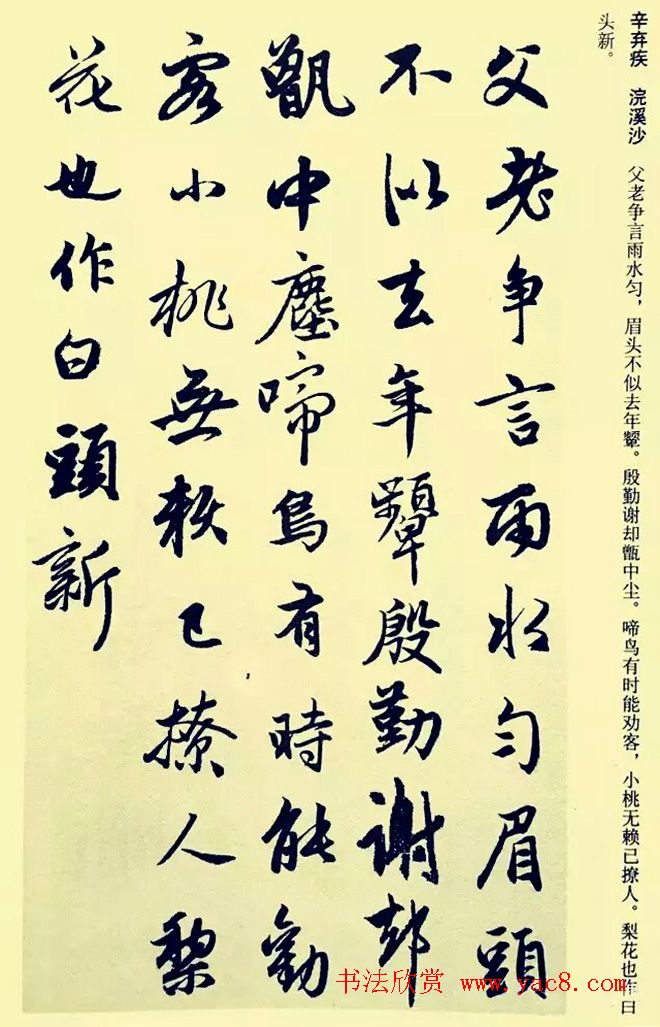 辛弃疾 浣溪沙 父老争言雨水匀，眉头不似去年颦。殷勤谢却甑中尘。啼鸟有时能劝客，小桃无赖已撩人。梨花也作白
头新。
父老争言雨水匀眉頭
不似去年顰殷勤謝却
甑中塵啼鳥有時能勸
客小桃無賴已撩人梨
花也作白頭新
书法欣赏 www.yac8.com